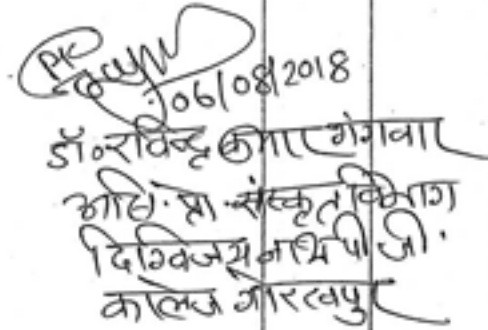 06/08/2018
डॉ० रविन्द्र कुमार गंगवार
असि. प्रो. संस्कृत विभाग
दिग्विजय नाथ पी जी.
कालेज गोरखपुर